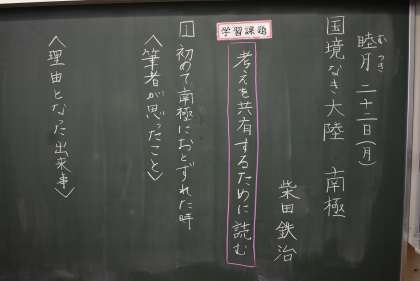 睦月 二十二日(月)
むつき
国境なき大陸 南極
柴田 鉄治
学習課題
考えを共有するために読む
1 初めて南極におとずれた時
〈筆者が思ったこと〉
〈理由となった出来事〉